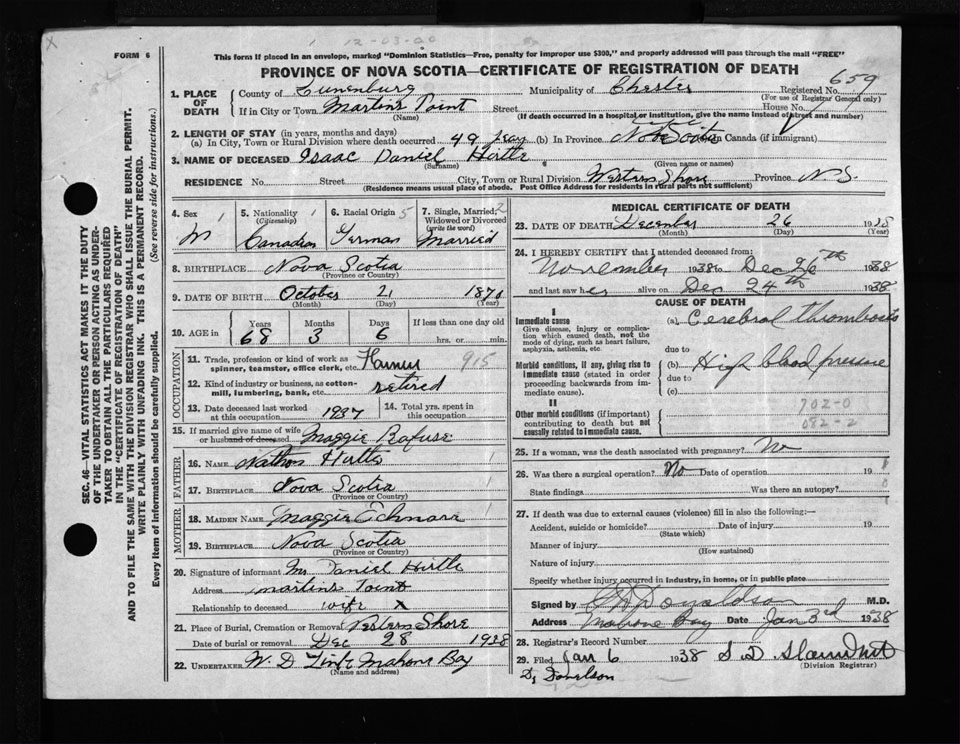 FORM 6
12-03-00
This form if placed in an envelope, marked "Dominion Statistics—Free, penalty for improper use $300," and properly addressed will pass through the mail "FREE"
PROVINCE OF NOVA SCOTIA—CERTIFICATE OF REGISTRATION OF DEATH
659
SEC. 46—VITAL STATISTICS ACT MAKES IT THE DUTY OF THE UNDERTAKER OR PERSON ACTING AS UNDERTAKER TO OBTAIN ALL THE PARTICULARS REQUIRED IN THE "CERTIFICATE OF REGISTRATION OF DEATH"
AND TO FILE THE SAME WITH THE DIVISION REGISTRAR WHO SHALL ISSUE THE BURIAL PERMIT.
WRITE PLAINLY WITH UNFADING INK. THIS IS A PERMANENT RECORD.
Every item of information should be carefully supplied. (See reverse side for instructions.)
1. PLACE OF DEATH County of Lunenburg Municipality of Chester Registered No.
(For use of Registrar General only)
If in City or Town Martins Point Street House No.
(Name) (If death occurred in a hospital or institution, give the name instead of street and number)
2. LENGTH OF STAY (in years, months and days)
(a) In City, Town or Rural Division where death occurred 49 (b) In Province Nova Scotia in Canada (if immigrant)
3. NAME OF DECEASED Isaac Daniel Hirtle
(Surname) (Given name or names)
RESIDENCE No. Street City, Town or Rural Division Western Shore Province N. S.
(Residence means usual place of abode. Post Office Address for residents in rural parts not sufficient)
4. Sex M
5. Nationality (Citizenship) Canadian
6. Racial Origin German
7. Single, Married, Widowed or Divorced (write the word) Married
8. BIRTHPLACE Nova Scotia
(Province or Country)
9. DATE OF BIRTH October 21 1870
(Month) (Day) (Year)
10. AGE in Years Months Days If less than one day old
68 3 6 hrs. or min.
OCCUPATION
11. Trade, profession or kind of work as spinner, teamster, office clerk, etc. Farmer 915
12. Kind of industry or business, as cotton-mill, lumbering, bank, etc. retired
13. Date deceased last worked at this occupation 1937
14. Total yrs. spent in this occupation
15. If married give name of wife or husband of deceased Maggie Rafuse
FATHER
16. NAME Nathan Hirtle
17. BIRTHPLACE Nova Scotia
(Province or Country)
MOTHER
18. MAIDEN NAME Maggie
19. BIRTHPLACE Nova Scotia
(Province or Country)
20. Signature of informant Mrs Daniel Hirtle
Address Martins Point
Relationship to deceased wife X
21. Place of Burial, Cremation or Removal Western Shore
Date of burial or removal Dec 28 1938
22. UNDERTAKER W. D. Mahone Bay
(Name and address)
MEDICAL CERTIFICATE OF DEATH
23. DATE OF DEATH December 26 1938
(Month) (Day) (Year)
24. I HEREBY CERTIFY that I attended deceased from:
November 1938 to Dec 26th 1938
and last saw h alive on Dec 24th 1938
CAUSE OF DEATH
I
Immediate cause
Give disease, injury or complication which caused death, not the mode of dying, such as heart failure, asphyxia, asthenia, etc.
(a) Cerebral thrombosis
due to
Morbid conditions, if any, giving rise to immediate cause (stated in order proceeding backwards from immediate cause).
(b) High blood pressure
due to
(c)
II
Other morbid conditions (if important) contributing to death but not causally related to immediate cause.
702-0
082-2
25. If a woman, was the death associated with pregnancy? No
26. Was there a surgical operation? No Date of operation 19
State findings Was there an autopsy?
27. If death was due to external causes (violence) fill in also the following:—
Accident, suicide or homicide? Date of injury 19
(State which)
Manner of injury
(How sustained)
Nature of injury
Specify whether injury occurred in industry, in home, or in public place
Signed by Donaldson M.D.
Address Mahone Bay Date Jan 3rd 1938
28. Registrar's Record Number
29. Filed Jan 6 1938 S D
(Division Registrar)
Donelson